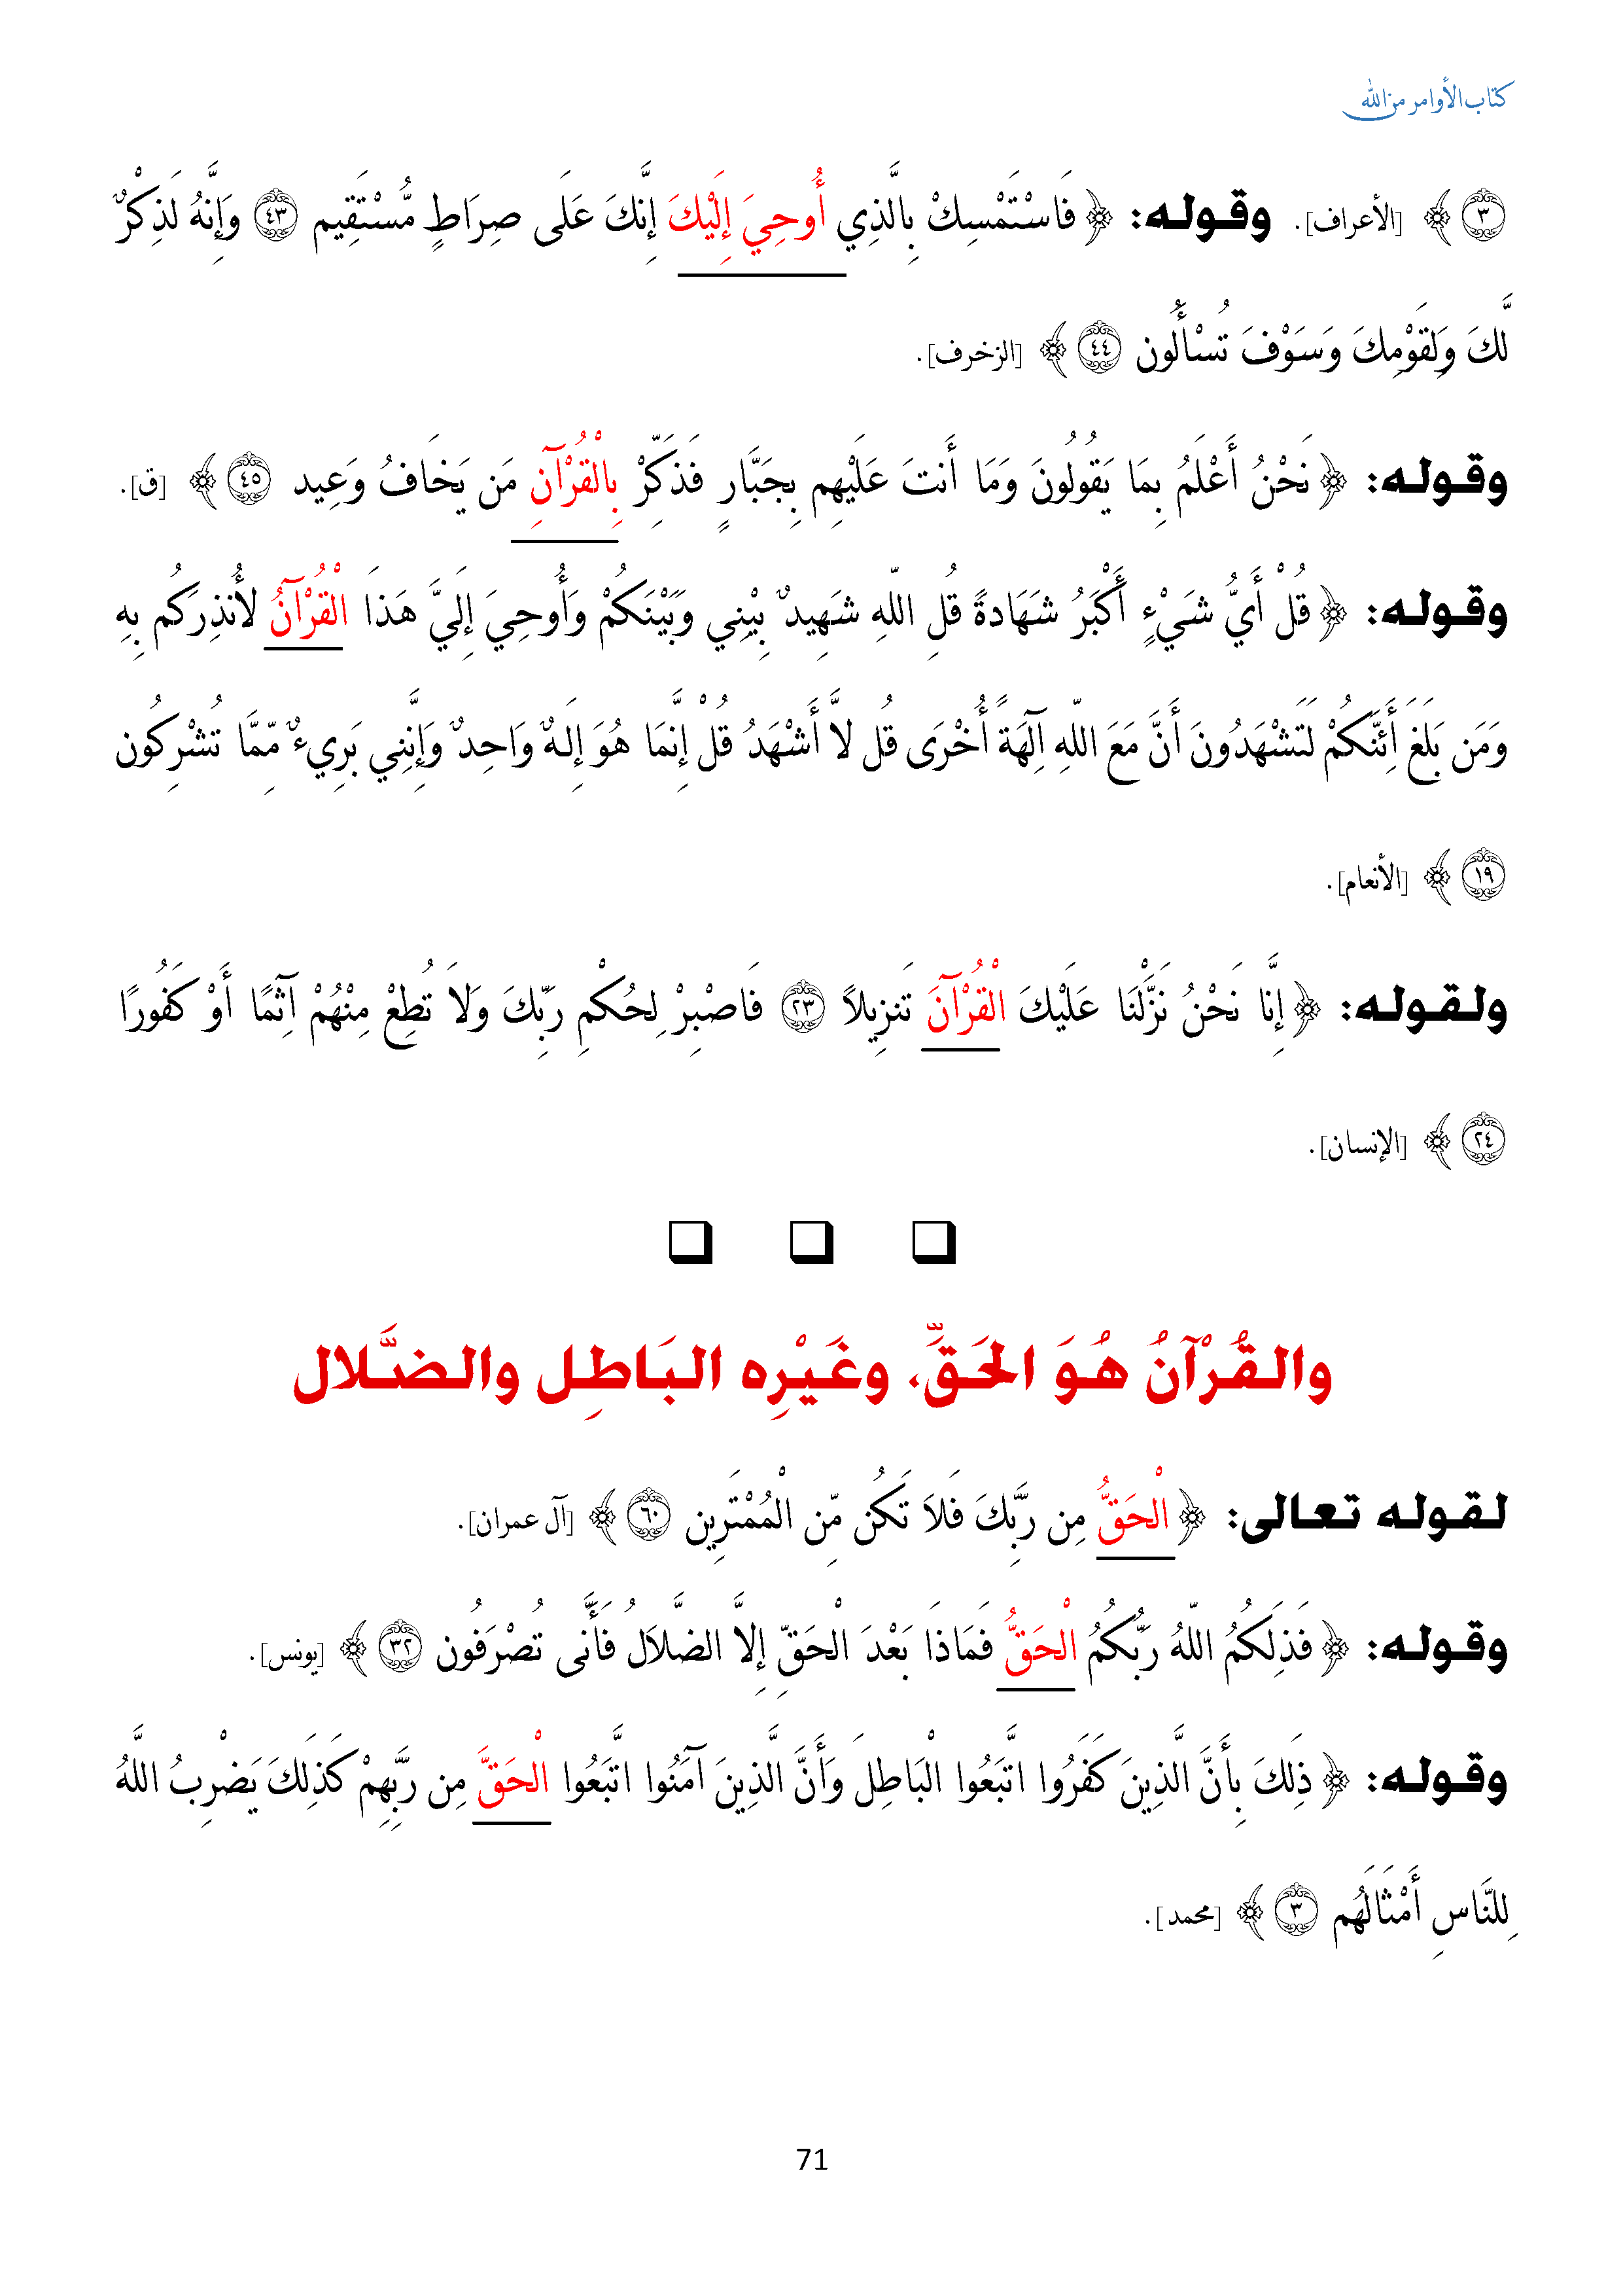 كتاب الأوامر من الله
٣ ﴾ [الأعراف]. وقوله: ﴿ فَاسْتَمْسِكْ بِالَّذِي أُوحِيَ إِلَيْكَ إِنَّكَ عَلَى صِرَاطٍ مُّسْتَقِيم ٤٣ وَإِنَّهُ لَذِكْرٌ
لَّكَ وَلِقَوْمِكَ وَسَوْفَ تُسْأَلُون ٤٤ ﴾ [الزخرف].
وقوله: ﴿ نَحْنُ أَعْلَمُ بِمَا يَقُولُونَ وَمَا أَنتَ عَلَيْهِم بِجَبَّارٍ فَذَكِّرْ بِالْقُرْآنِ مَن يَخَافُ وَعِيد ٤٥ ﴾ [ق].
وقوله: ﴿ قُلْ أَيُّ شَيْءٍ أَكْبَرُ شَهَادةً قُلِ اللّهِ شَهِيدٌ بِيْنِي وَبَيْنَكُمْ وَأُوحِيَ إِلَيَّ هَذَا الْقُرْآنُ لأُنذِرَكُم بِهِ
وَمَن بَلَغَ أَئِنَّكُمْ لَتَشْهَدُونَ أَنَّ مَعَ اللّهِ آلِهَةً أُخْرَى قُل لاَّ أَشْهَدُ قُلْ إِنَّمَا هُوَ إِلَهٌ وَاحِدٌ وَإِنَّنِي بَرِيءٌ مِّمَّا تُشْرِكُون
١٩ ﴾ [الأنعام].
ولقوله: ﴿ إِنَّا نَحْنُ نَزَّلْنَا عَلَيْكَ الْقُرْآنَ تَنزِيلاً ٢٣ فَاصْبِرْ لِحُكْمِ رَبِّكَ وَلاَ تُطِعْ مِنْهُمْ آثِمًا أَوْ كَفُورًا
٢٤ ﴾ [الإنسان].
❑ ❑ ❑
والقُرْآنُ هُوَ الحَقِّ، وغَيْرِه البَاطِل والضَّلال
لقوله تعالى: ﴿ الْحَقُّ مِن رَّبِّكَ فَلاَ تَكُن مِّن الْمُمْتَرِين ٦٠ ﴾ [آل عمران].
وقوله: ﴿ فَذَلِكُمُ اللّهُ رَبُّكُمُ الْحَقُّ فَمَاذَا بَعْدَ الْحَقِّ إِلاَّ الضَّلاَلُ فَأَنَّى تُصْرَفُون ٣٢ ﴾ [يونس].
وقوله: ﴿ ذَلِكَ بِأَنَّ الَّذِينَ كَفَرُوا اتَّبَعُوا الْبَاطِلَ وَأَنَّ الَّذِينَ آمَنُوا اتَّبَعُوا الْحَقَّ مِن رَّبِّهِمْ كَذَلِكَ يَضْرِبُ اللَّهُ
لِلنَّاسِ أَمْثَالَهُم ٣ ﴾ [محمد].
71